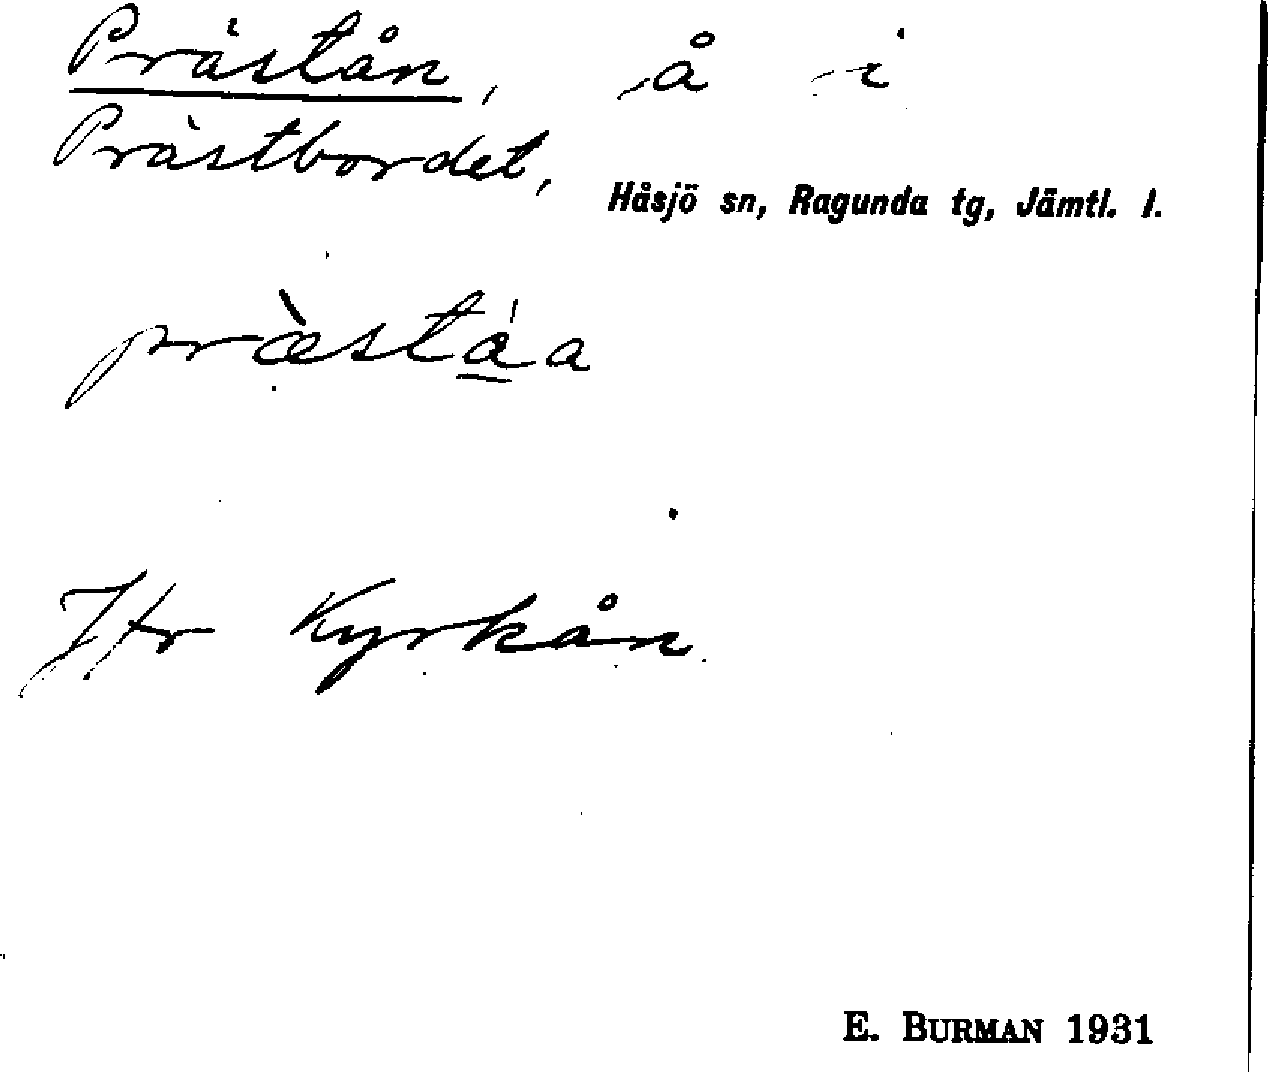 Prästån, å i
Prästbordet,
Håsjö sn, Ragunda tg, Jämtl. l.
præ̀stáa
Jfr Kyrkån
E. BURMAN 1931